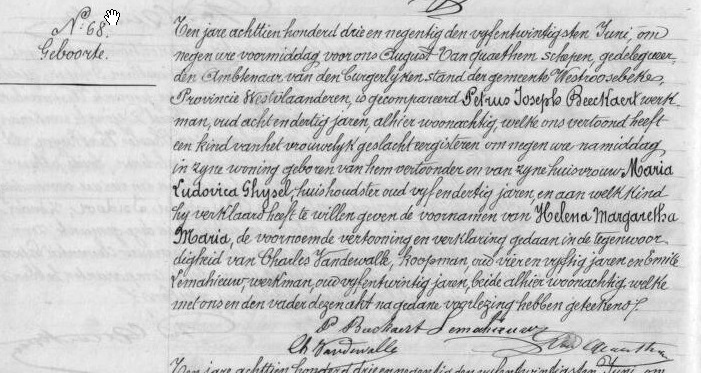 N.° 68.
Geboorte.
Ten jare achttien honderd drie en negentig den vyfentwintigsten Juni, om
negen ure voormiddag voor ons August Van quaethem schepen, gedelegueer-
den Ambtenaar van den burgerlyken stand der gemeente Westroosebeke,
Provincie Westvlaanderen, is gecompareerd Petrus Joseph Beeckaert werk-
man, oud acht en dertig jaren, alhier woonachtig, welke ons vertoond heeft
een kind van het vrouwelyk geslacht eergisteren om negen ure namiddag
in zyne woning geboren van hem vertoonder en van zyne huisvrouw Maria
Ludovica Ghysel, huishoudster oud vyfendertig jaren, en aan welk kind
hy verklaard heeft te willen geven de voornamen van Helena Margaretha
Maria, de voornoemde vertooning en verklaring gedaan in de tegenwoor-
digheid van Charles Vandewalle, Koopman, oud vier en vyftig jaren en Emile
Lemahieuw, werkman, oud vyfentwintig jaren, beide alhier woonachtig, welke
met ons en den vader dezen akt na gedane voorlezing hebben geteekend.
P Beckaert Lemahieuw
Ch Vandewalle
Ten jare achttien honderd drie en negentig den vyfentwintigsten Juni, om